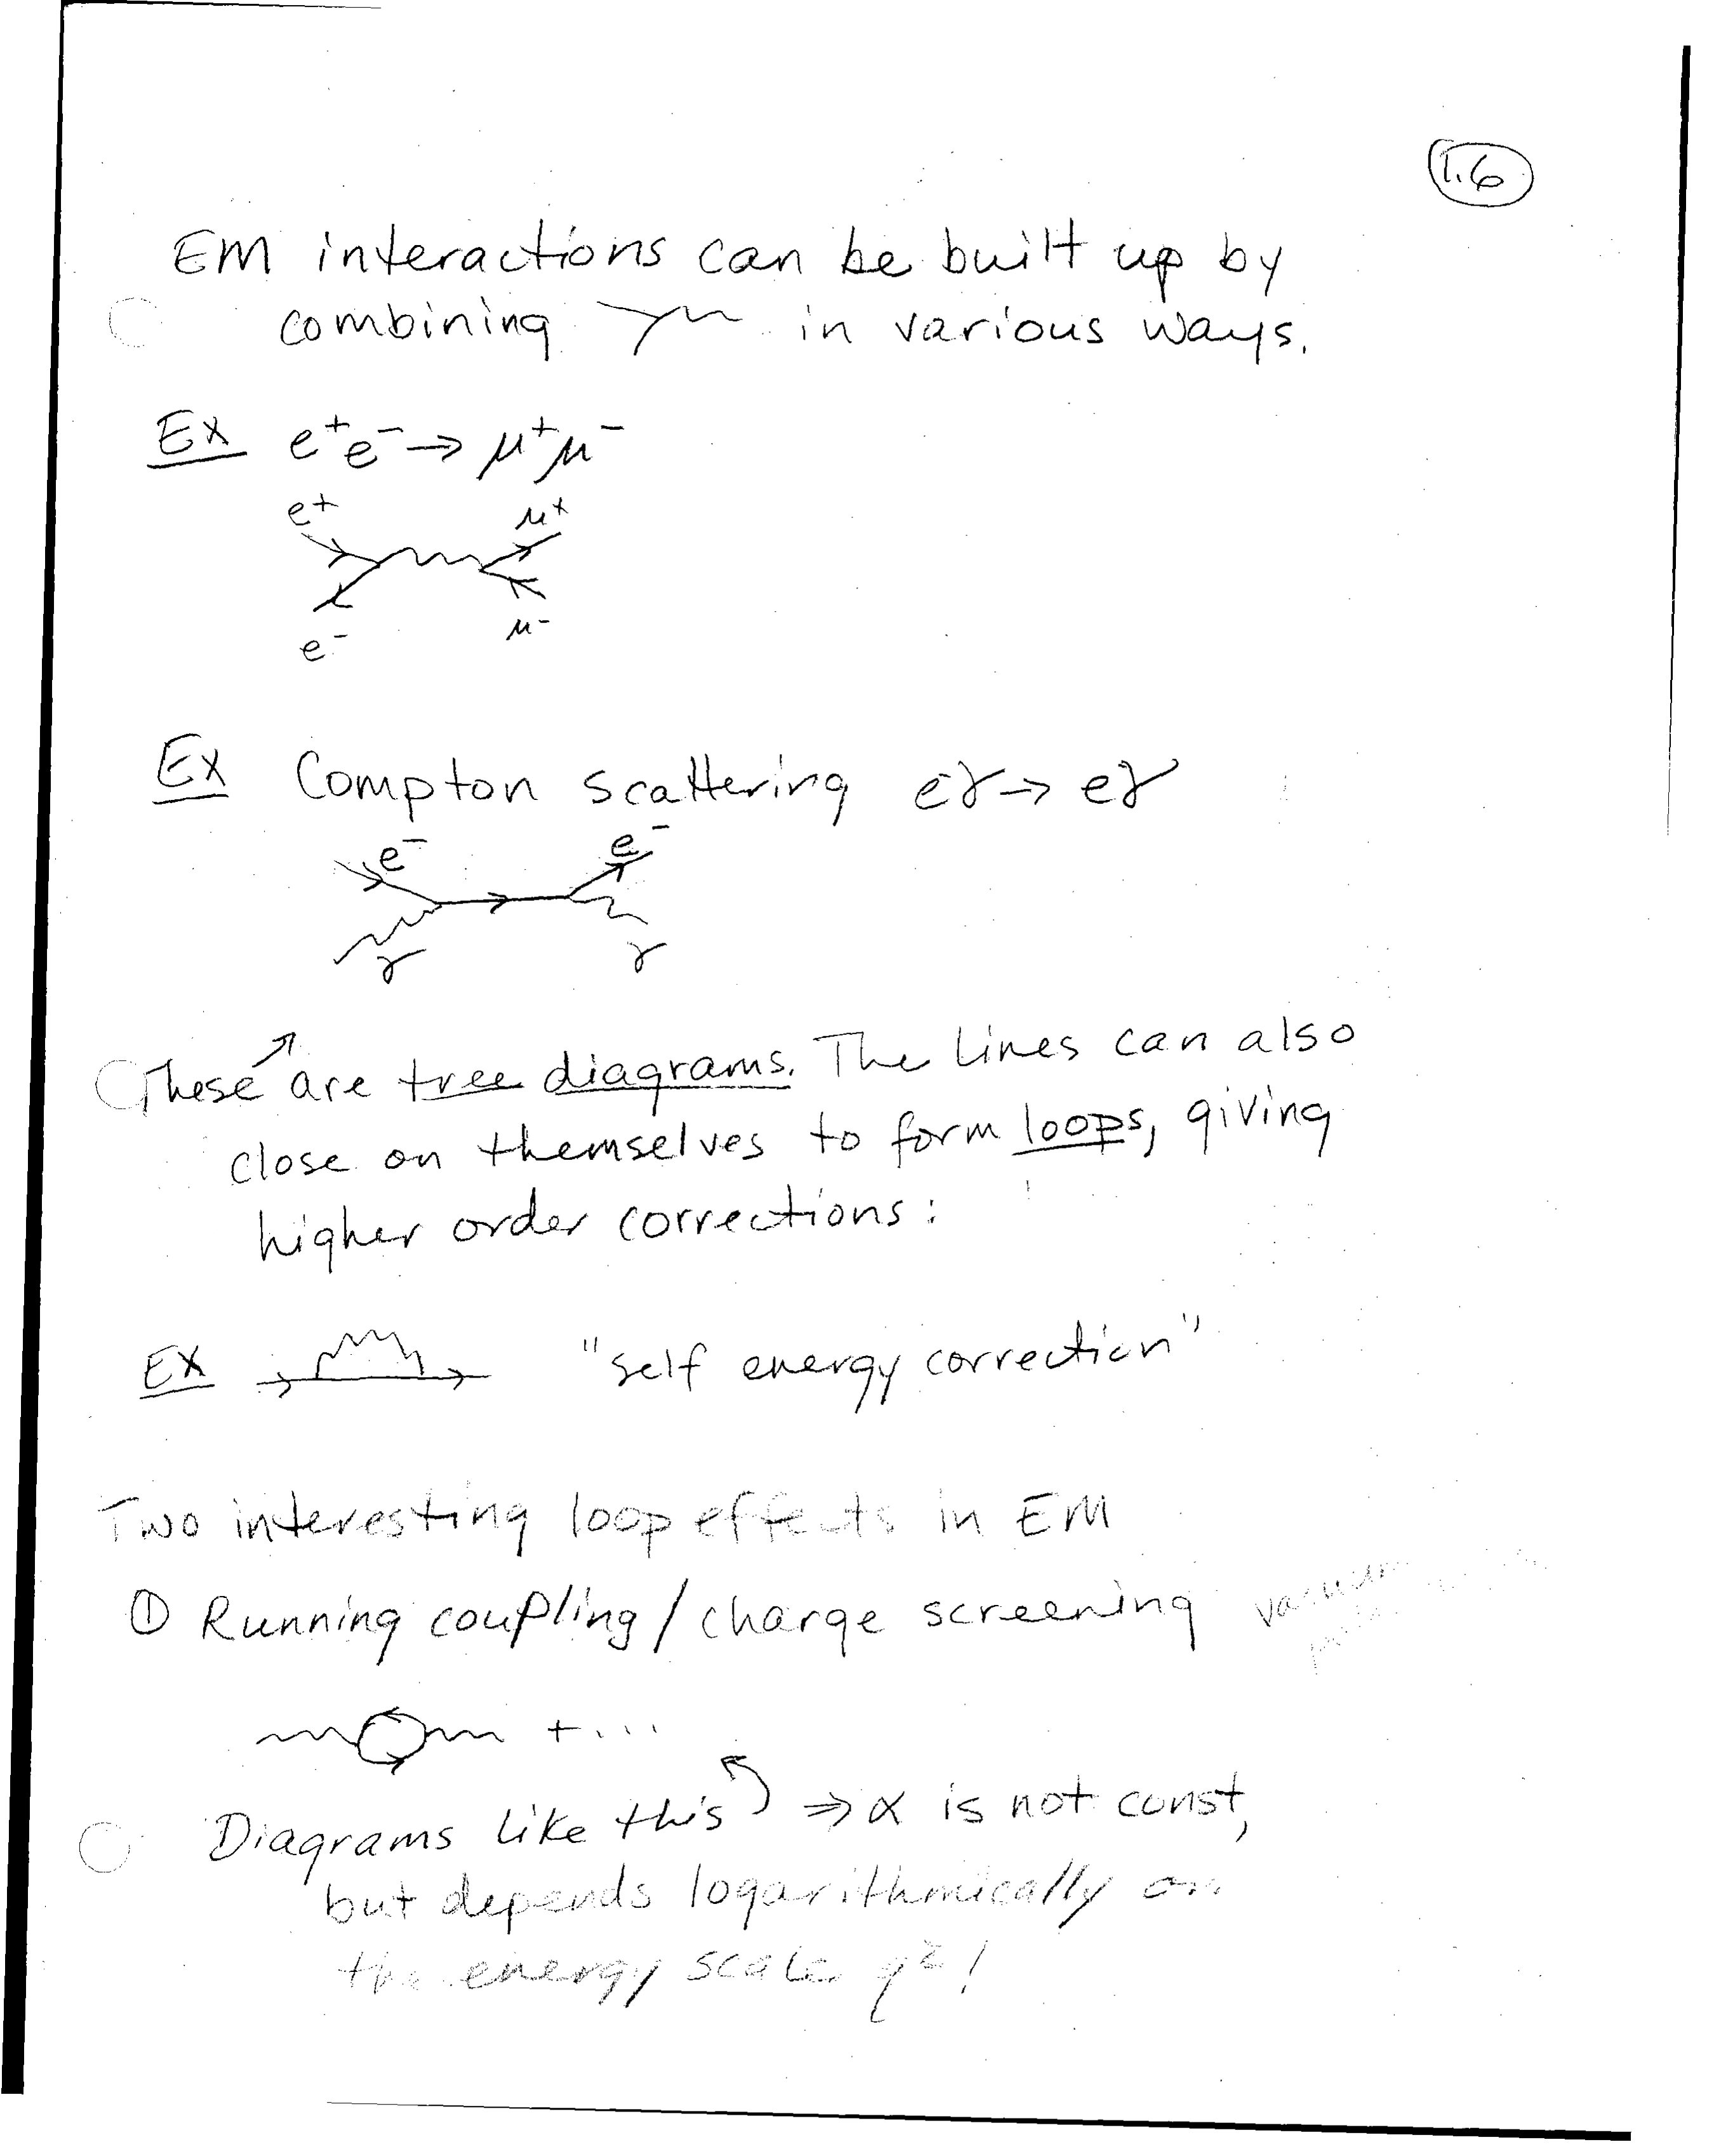 1.6
EM interactions can be built up by
combining in various ways.
Ex e⁺e⁻ → μ⁺μ⁻
e⁺ μ⁺
e⁻ μ⁻
Ex Compton scattering eγ → eγ
e⁻ e⁻
γ γ
These are tree diagrams. The lines can also
close on themselves to form loops, giving
higher order corrections:
Ex "self energy correction"
Two interesting loop effects in EM
① Running coupling / charge screening vacuum
+ ...
Diagrams like this ⇒ α is not const,
but depends logarithmically on
the energy scale q²!